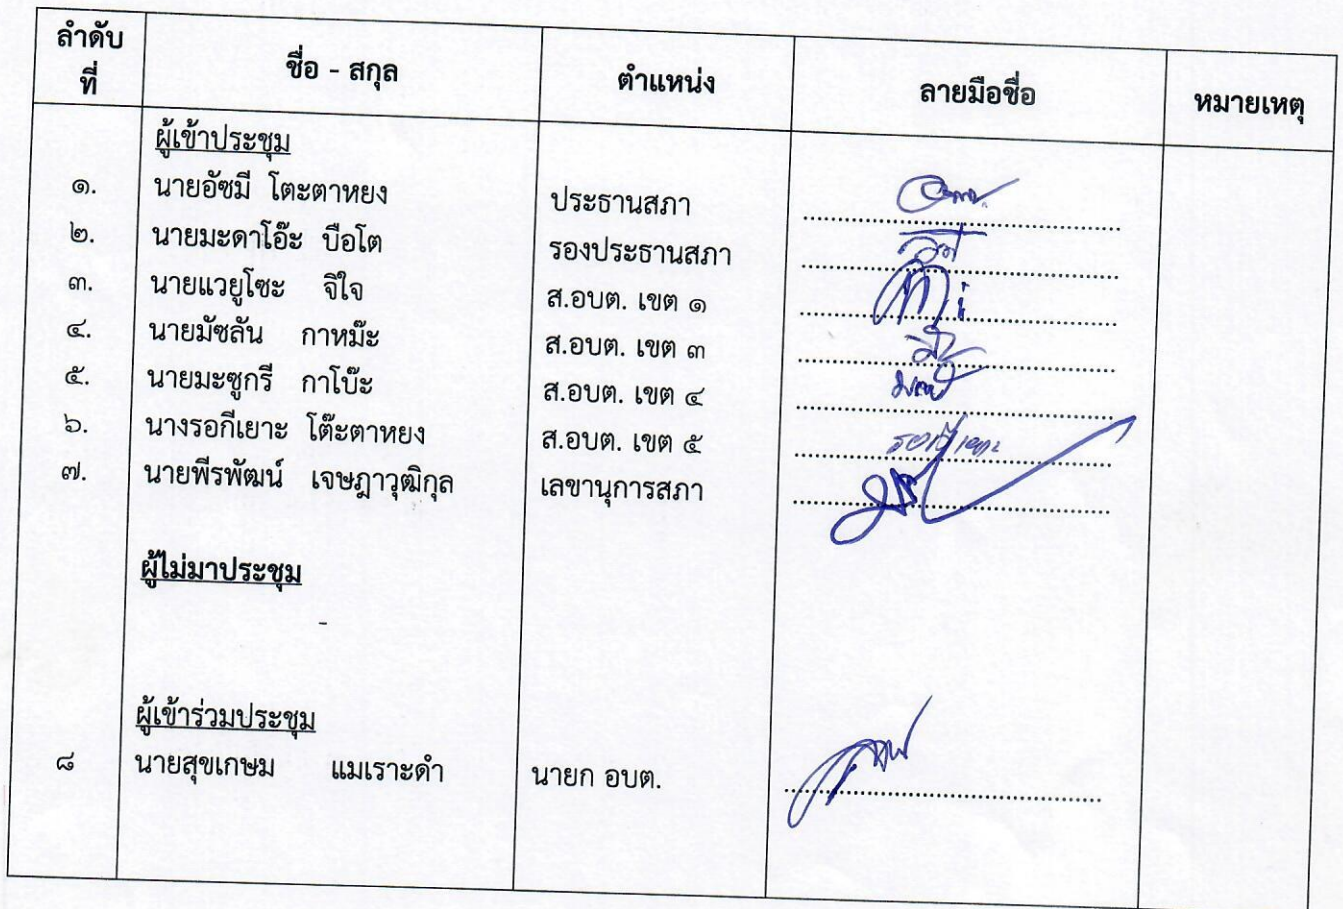 ลำดับที่ ชื่อ - สกุล ตำแหน่ง ลายมือชื่อ หมายเหตุ
ผู้เข้าประชุม
๑. นายอัซมี โตะตาหยง ประธานสภา
๒. นายมะดาโอ๊ะ บือโต รองประธานสภา
๓. นายแวยูโซะ จิใจ ส.อบต. เขต ๑
๔. นายมัซลัน กาหม๊ะ ส.อบต. เขต ๓
๕. นายมะซูกรี กาโบ๊ะ ส.อบต. เขต ๔
๖. นางรอกีเยาะ โต๊ะตาหยง ส.อบต. เขต ๕ รอกีเยาะ
๗. นายพีรพัฒน์ เจษฎาวุฒิกุล เลขานุการสภา
ผู้ไม่มาประชุม
-
ผู้เข้าร่วมประชุม
๘ นายสุขเกษม แมเราะดำ นายก อบต.